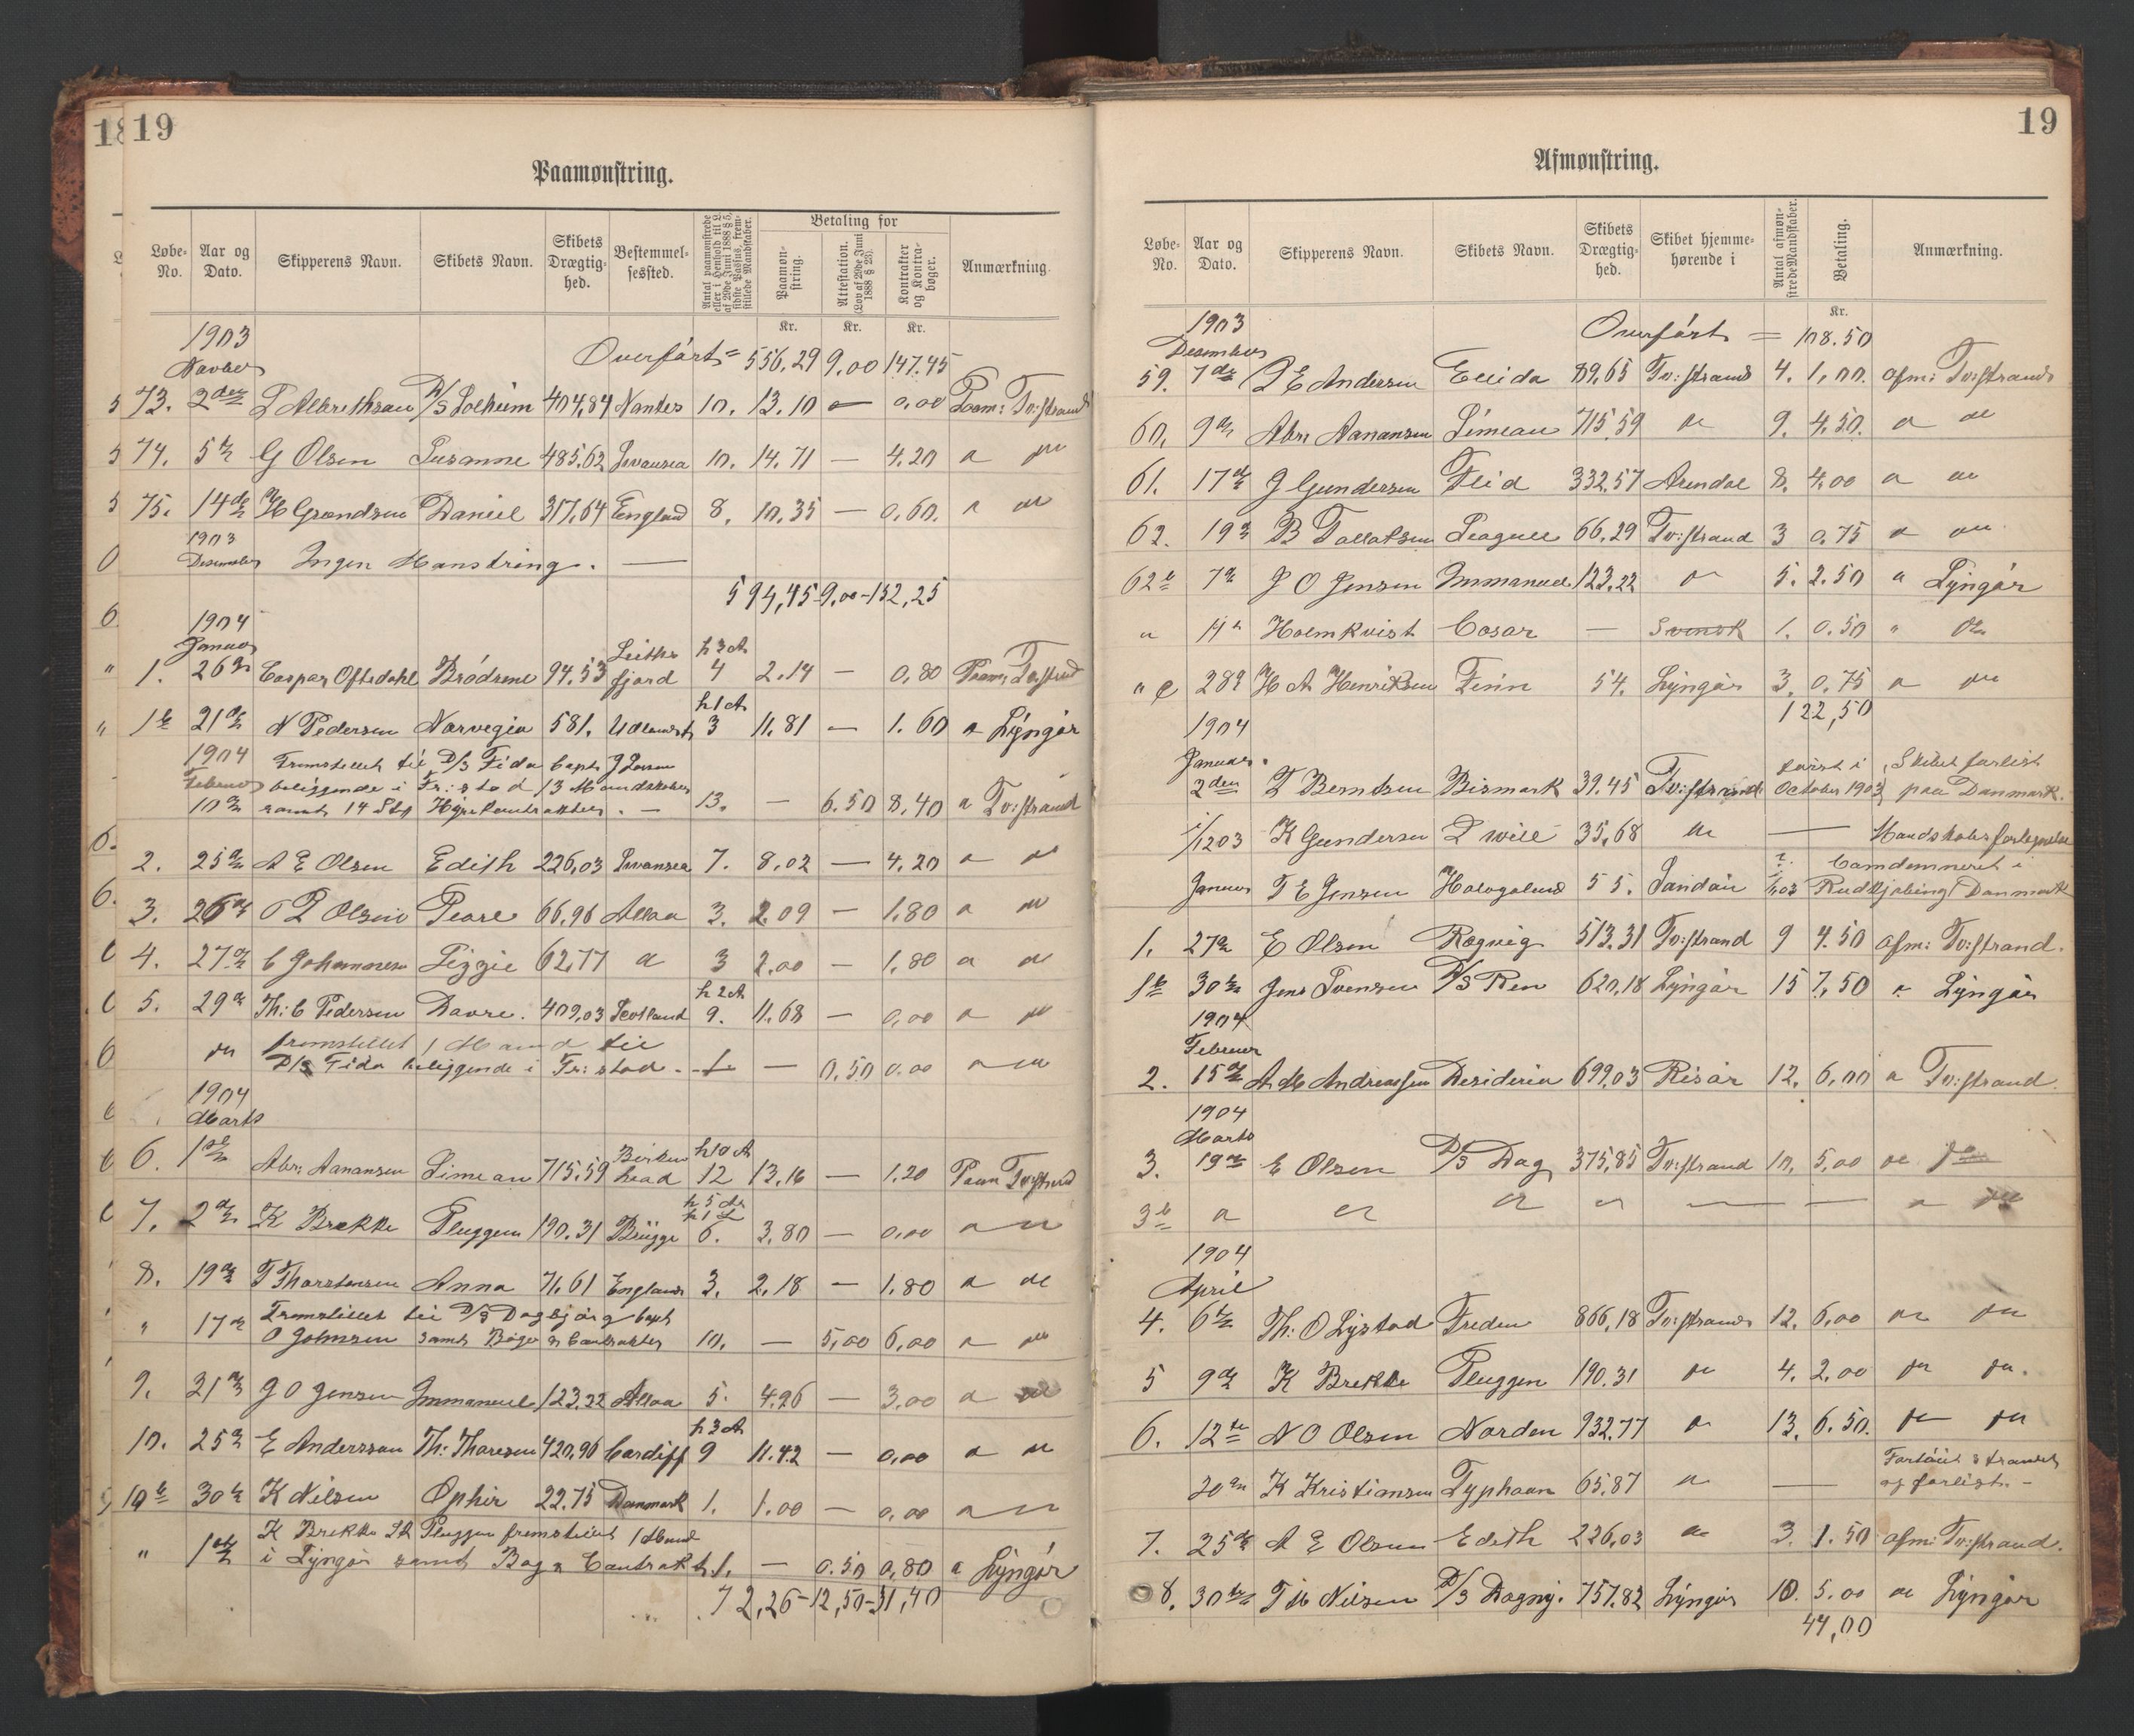 19
Paamønstring.
Løbe-No. Aar og Dato. Skipperens Navn. Skibets Navn. Skibets Drægtig-hed. Bestemmel-sessted. Antal paamønstrede eller i Henhold til L. af 29de Juni 1888 § 5, sidste Passus, frem-stillede Mandskaber. Betaling for Paamøn-string. Attestation. (Lov af 29de Juni 1888 § 23). Kontrakter og Kontra-bøger. Anmærkning.
Kr. Kr. Kr.
1903
Novber Overført = 556.29 9.00 147.45
73. 2den L Albrethsen D/S Solheim 404,84 Nantes 10. 13.10 — 0,00 Paam: Tv:strand
74. 5te G Olsen Susanne 485,62 Swansea 10. 14.71 — 4.20 " "
75. 14de H Grondsen Daniel 317,64 England 8. 10.35 — 0,60. " "
1903
Desember Ingen Mønstring. —
594,45 - 9,00 - 152,25
1904
Januar
1. 26de Casper Oftedahl Brödrene 94.53 Leithsfjord h 3 A 4 2.14 — 0,80 Paam Tvstrand
1b 21de N Pedersen Norvegia 581. Udlandet h 1 A 3 11.81 — 1.60 " Lyngör
1904 Fremstillet til D/S Fida Capt J Larsen
Februar beliggende i Fr:stad 13 Mandskaber
10de samt 14 Stk Hyrekontrakter. — 13. — 6.50 8,40 " Tv:strand
2. 25de A E Olsen Edith 226,03 Swansea 7. 8,02 — 4.20 " "
3. 26de O P Olsen Pearl 66,96 Alloa 3. 2.09 — 1,80 " "
4. 27de C Johannesen Lizzie 62,77 " 3 2.00 — 1,80 " "
5. 29de Th: C Pedersen Davre. 409,03 Scotland h 2 A 9. 11.68 — 0,00 " "
" fremstillet 1 Mand til
D/S Fida beliggende i Fr:stad. 1 — 0,50 0.00 " "
1904
Marts
6. 1ste Abr: Aanansen Simean 715.59 Birkenhead h 10 A 12 13,16 — 1.20 Paam Tvstrand
7. 2den K Brekke Pluggen 190.31 Brügge 6. 3,80 — 0,00 " "
8. 19de T Thorstensen Anna 71,61 England 3. 2,18 — 1.80 " "
" 17de Fremstillet til D/S Dagbjørg Capt
O Johnsen samt Bøger & Contrakter 10. — 5,00 6,00 " "
9. 21de J O Jensen Immanuel 123.22 Alloa 5. 4.26 — 3,00 " "
10. 25de E Anderssen Th: Thoresen 420,96 Cardiff h 3 A 9 11.42 — 0,00 " "
10b 30te K Nilsen Ophir 22.75 Danmark 1. 1.00 — 0,00 " "
" 1ste K Brekke Sk Pluggen fremstillet 1 Mand
i Lyngör samt Bog & Contrakt 1. — 0.50 0,80 " Lyngör
72,26 - 12,50 - 31,40
19
Afmønstring.
Løbe-No. Aar og Dato. Skipperens Navn. Skibets Navn. Skibets Drægtig-hed. Skibet hjemme-hørende i Antal afmøn-strede Mandskaber. Betaling. Anmærkning.
Kr.
1903
Desember Overført = 108.50
59. 7de P E Andersen Ellida 89,65 Tv:strand 4. 1,00. afm: Tv:strand
60. 9de Abr Aanansen Simean 715.59 " 9. 4.50. " "
61. 17de J Gundersen Fleid 332.57 Arendal 8. 4,00 " "
62. 19de B Tallaksen Seagull 66.29 Tv:strand 3 0.75 " "
62b 7de J O Jensen Immanuel 123.22 " 5. 2.50 " Lyngör
" Holmkvist Cæsar — Svensk 1. 0.50 " "
" 28de H A Henriksen Finn 54. Lyngör 3. 0.75 " "
122,50
1904
Januar
2den T Berndsen Bismark 39.45 Tv:strand forst i October 1903 Skibet forlist paa Danmark.
1/12 03 K Gundersen 35,68 " — Mandskabsfortegnelse
Januar T E Jensen Halogaland 55. Sandöen Condemneret i Rudkjøbing Danmark
1. 27de E Olsen Ragvig 513.31 Tv:strand 9 4.50 afm: Tv:strand.
1b 30te Jens Svensen D/S Ren 620,18 Lyngör 15 7,50 " Lyngör
1904
Februar
2. 15de A M Andreassen Desideria 699,03 Risör 12. 6,00 " Tv:strand.
1904
Marts
3. 19de E Olsen D/S Dag 375,85 Tv:strand 10. 5,00 " "
3b " " " " — — " "
1904
April
4. 6te Th: O Lystad Freden 866,18 Tv:strand 12. 6,00 " "
5 9de K Brekke Pluggen 190.31 " 4. 2.00 " "
6. 12te N O Olsen Norden 932.77 " 13. 6.50. " "
20de K Kristiansen Typhoon 65.87 " — strandet og forlist. —
7. 25de A E Olsen Edith 226,03 " 3. 1.50 afm: Tv:strand.
8. 30te T M Nilsen D/S Dagny. 757.82 Lyngör 10. 5.00 " Lyngör
44,00